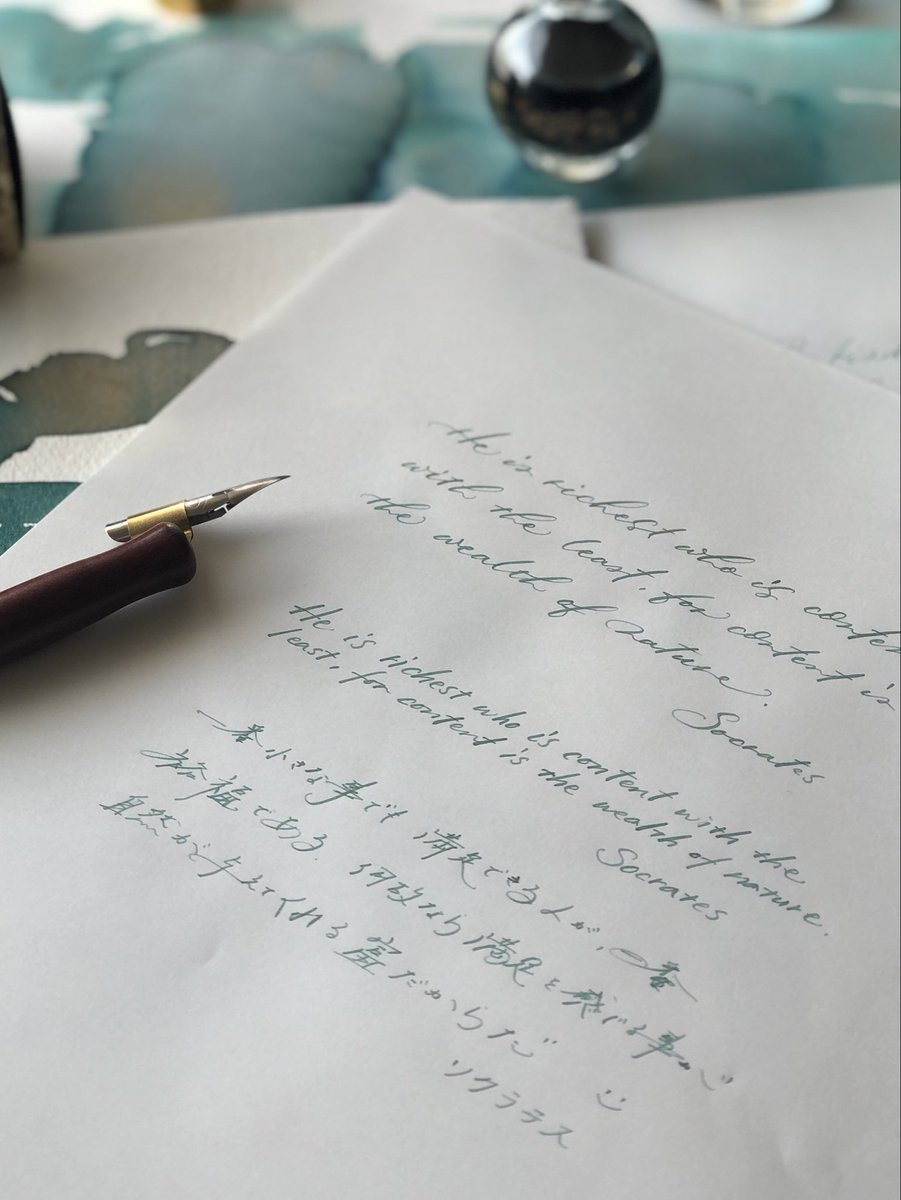 He is richest who is conten
with the least, for content is
the wealth of nature.
Socrates
He is richest who is content with the
least, for content is the wealth of nature.
Socrates
一番小さな事でも満足できる人が、一番
裕福である。何故なら満足を感じる事が
自然が与えてくれる富だからだ
ソクラテス